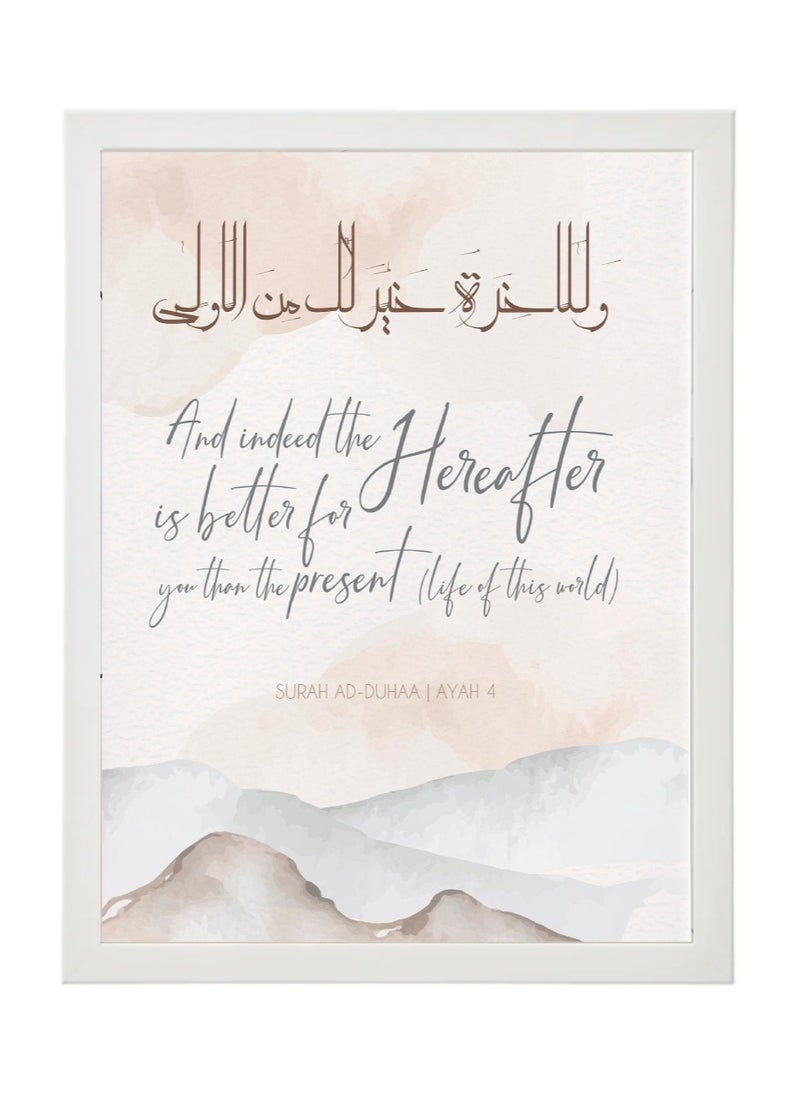 وَلَلْآخِرَةُ خَيْرٌ لَّكَ مِنَ الْأُولَىٰ
And indeed the Hereafter
is better for
you than the present (life of this world)
SURAH AD-DUHAA | AYAH 4